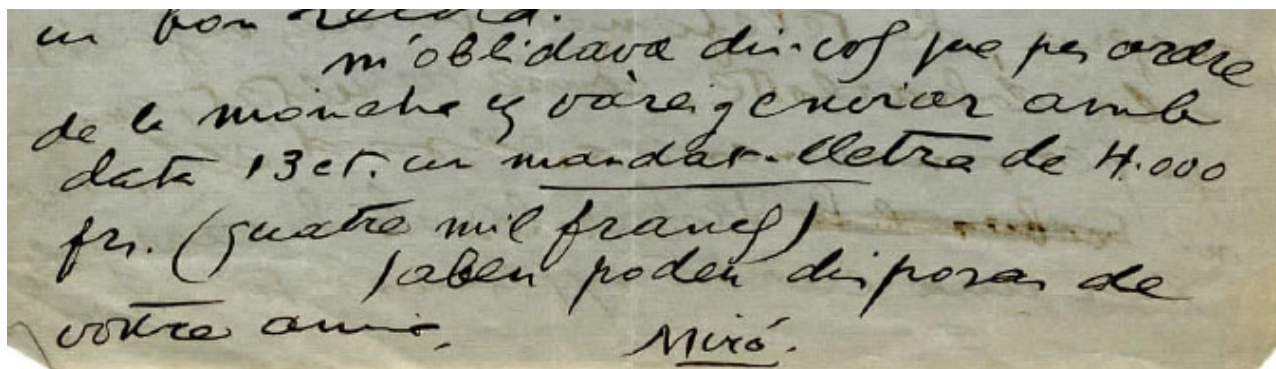 un bon record.
m'oblidava dir-vos que per ordre
de la moneha us vareig enviar amb
data 13 ct. un mandat-lletra de 4.000
frs. (quatre mil francs)
Saben poden disposar de
vostre amic,
Miró.